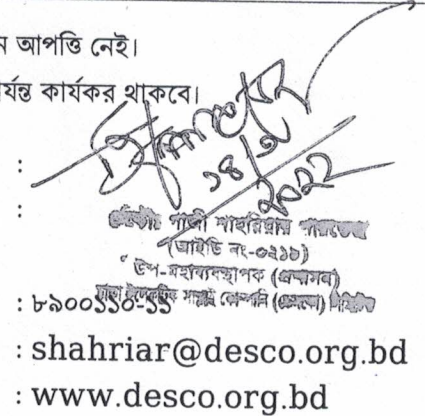 ন আপত্তি নেই।
র্যন্ত কার্যকর থাকবে।
:
১৪/৩
:
২০২২
গাজী শাহরিয়ার পারভেজ
(আইডি নং-০২১৮)
উপ-মহাব্যবস্থাপক (প্রশাসন)
ঢাকা ইলেকট্রিক সাপ্লাই কোম্পানি (ডেসকো) লিমিটেড
: ৮৯০০১১০-১১
: shahriar@desco.org.bd
: www.desco.org.bd